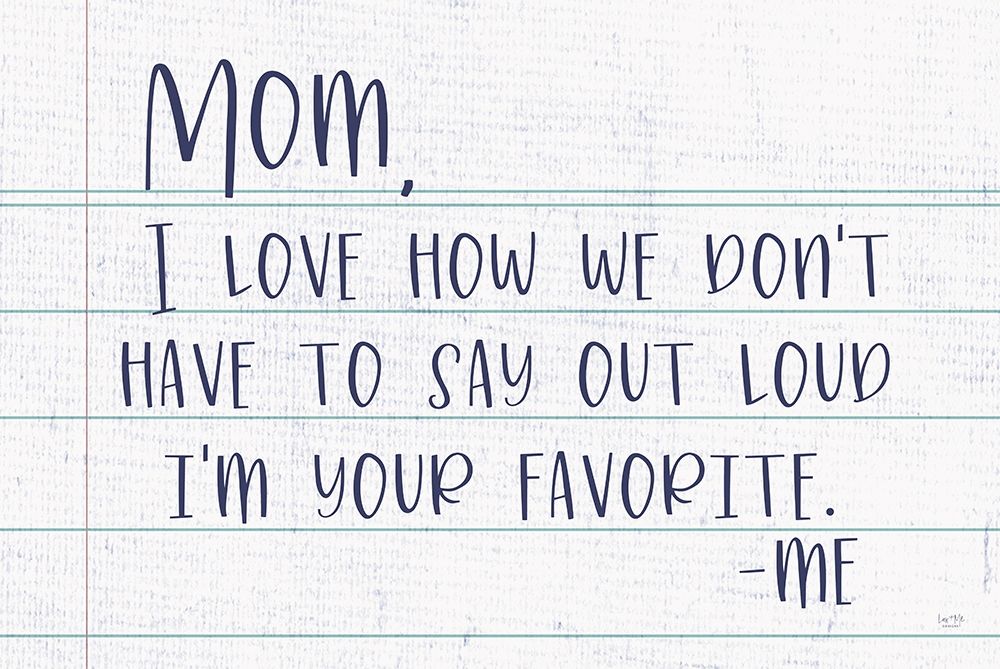 Mom,
I LOVE HOW WE DON'T
HAVE TO SAY OUT LOUD
I'M YOUR FAVORITE.
-ME
Lux + Me
DESIGNS